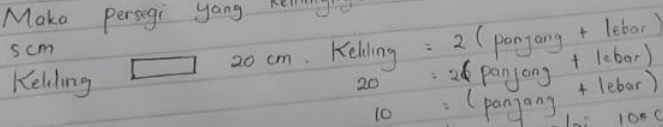 Maka persegi yang
5 cm
Keliling 20 cm. Keliling = 2 (panjang + lebar)
20 = 2(panjang + lebar)
10 = (panjang + lebar)